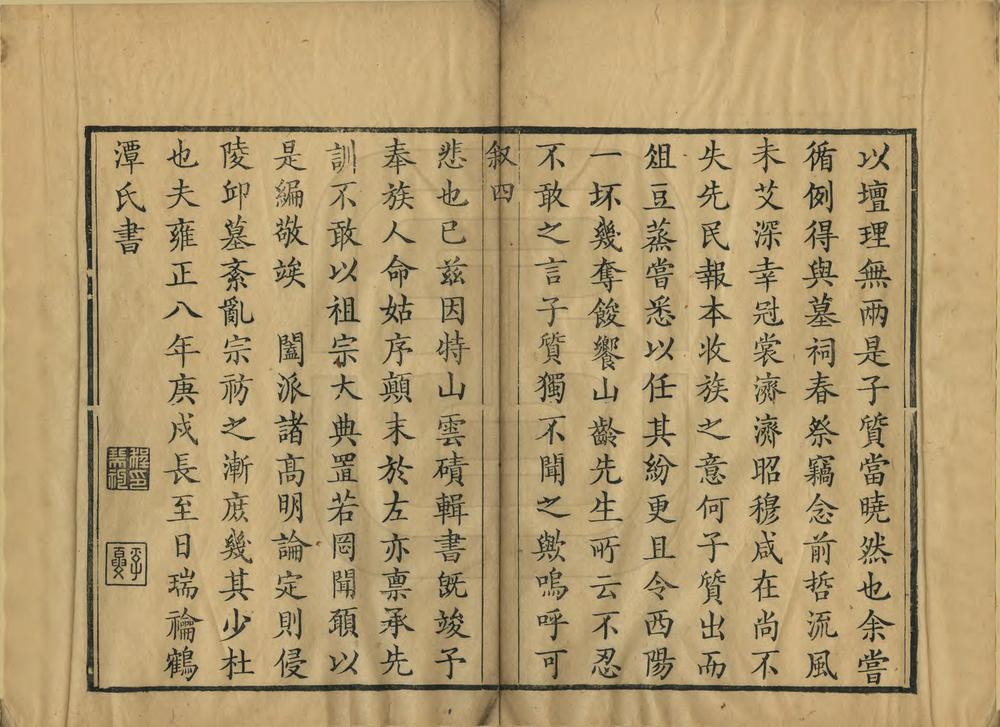 以壇理無兩是子質當曉然也余嘗
循例得與墓祠春祭竊念前哲流風
未艾深幸冠裳濟濟昭穆咸在尚不
失先民報本收族之意何子質出而
俎豆蒸嘗悉以任其紛更且令西陽
一坏幾奪餕饗山齡先生所云不忍
不敢之言子質獨不聞之歟嗚呼可
叙四
悲也已兹因特山雲磧輯書既竣予
奉族人命姑序顛末於左亦禀承先
訓不敢以祖宗大典置若罔聞頋以
是編敬竢　闔派諸髙明論定則侵
陵邱墓紊亂宗祊之漸庶幾其少杜
也夫雍正八年庚戍長至日瑞禴鶴
潭氏書